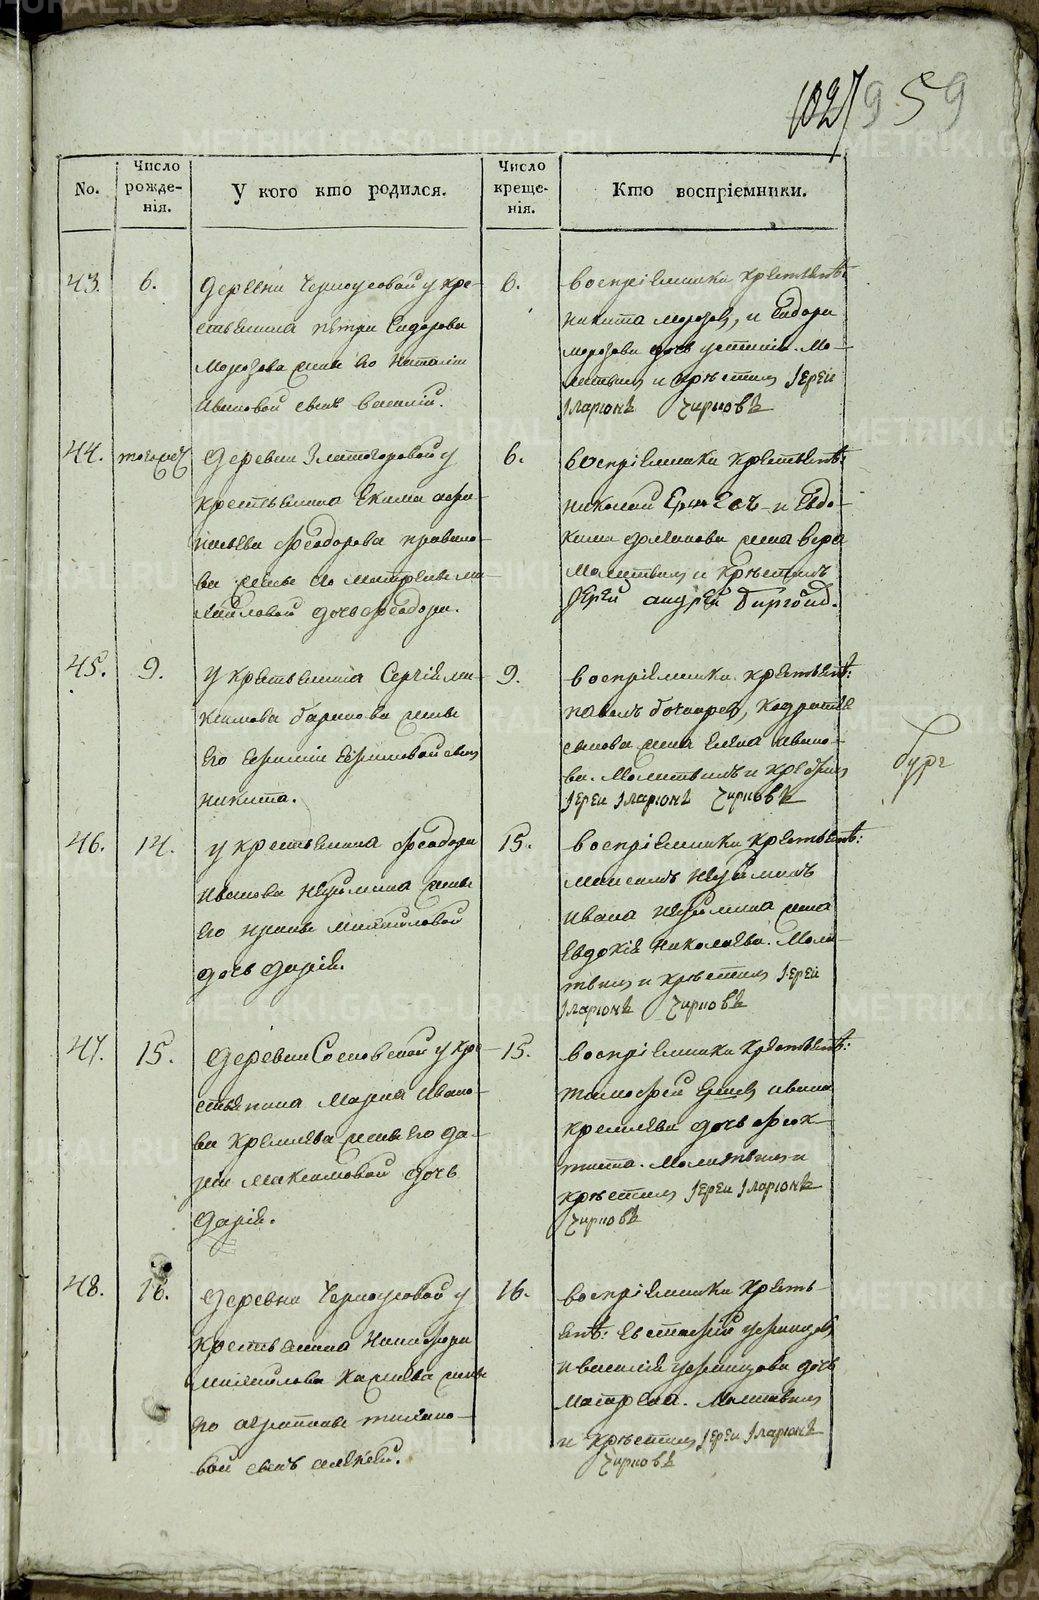 102 959
No.
Число рожде-нія.
У кого кто родился.
Число креще-нія.
Кто воспріемники.
43.
6.
деревни Черноусовой у кре-
стьянина петра Сидорова
Морозова жены его Наталіи
Ивановой сынъ Василій.
6.
воспріемники крестьянъ:
никита морозовъ, и Сидора
морозова дочь устинія. Мо-
литвилъ и крестилъ Іерей
Іларіонъ Чирковъ
44.
тогожъ
деревни Златогоровой у
крестьянина Екима
Феодорова
жены его матрены ми-
хайловой дочь Феодора.
6.
воспріемники крестьянъ:
николай и Евдо-
кима жена вера
Молитвилъ и Крестилъ
Іерей андрей
45.
9.
у крестьянина Сергія ма-
ксимова баринова жены
его Ефиміи Ефимовой сынъ
никита.
9.
воспріемники крестьянъ:
павелъ бочкаревъ, кодратія
жена елена ивано-
ва. Молитвилъ и крестилъ
Іерей Іларіонъ Чирковъ
46.
14.
у крестьянина Феодора
Иванова жены
его ирины михайловой
дочь дарія.
15.
воспріемники крестьянъ:
Ивана жена
Евдокія николаева. Моли-
твилъ и крестилъ Іерей
Іларіонъ Чирковъ
47.
15.
деревни Сосновской у кре-
стьянина Марка Ивано-
ва Кремлева жены его да-
ріи Максимовой дочь
дарія.
15.
воспріемники крестьянъ:
тимофей Ершовъ ивана
кремлева дочь феок-
тиста. Молитвилъ и
крестилъ Іерей Іларіонъ
Чирковъ
48.
16.
деревни Черноусовой у
крестьянина Никифора
михайлова жены
его
вой сынъ алексей.
16.
воспріемники кресть-
янъ: Евстафій уфимцовъ
и василія уфимцова дочь
матрена. Молитвилъ
и крестилъ Іерей Іларіонъ
Чирковъ
METRIKI.GASO-URAL.RU